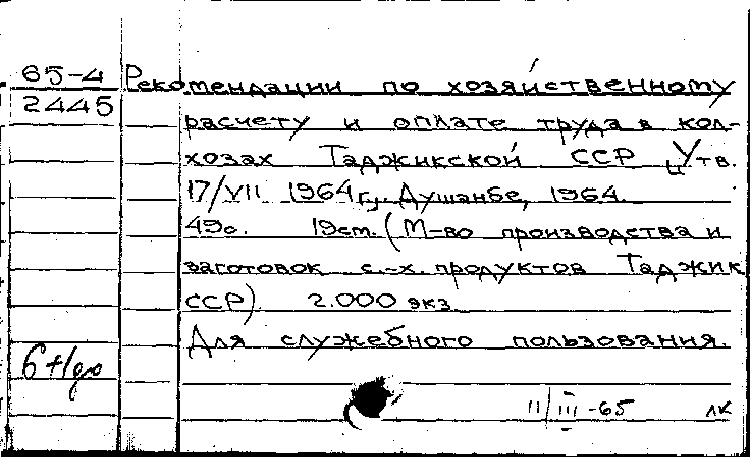 65-4 Рекомендации по хозяйственному
2445 расчету и оплате труда в кол-
хозах Таджикской ССР Утв.
17/VII 1964г. Душанбе, 1964.
49с. 19см. (М-во производства и
заготовок с.-х. продуктов Таджик
ССР) 2.000 экз
Для служебного пользования.
11/III-65 лк